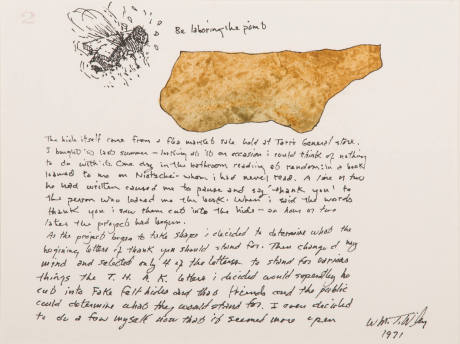 2
Be laboring the point
The hide itself came from a flea market sale held at Tarit General store.
I bought it last summer - looking at it on occasion i could think of nothing
to do with it. One day in the bathroom reading at random in a book
loaned to me on Nietzsche whom i had never read. A line or two
he had written caused me to pause and say "thank you" to
the person who loaned me the book. When i said the words
thank you i saw them cut into the hide - an hour or two
later the project had begun.
As the project began to take shape i decided to determine what the
begining letters of thank you should stand for. Then changed my
mind and selected only 4 of the letters to stand for various
things the T. H. & K. letters i decided would separately be
cut into fake felt hides and that friends and the public
could determine what they would stand for. I even decided
to do a few myself now that it seemed more open
Wm. T. Wiley
1971